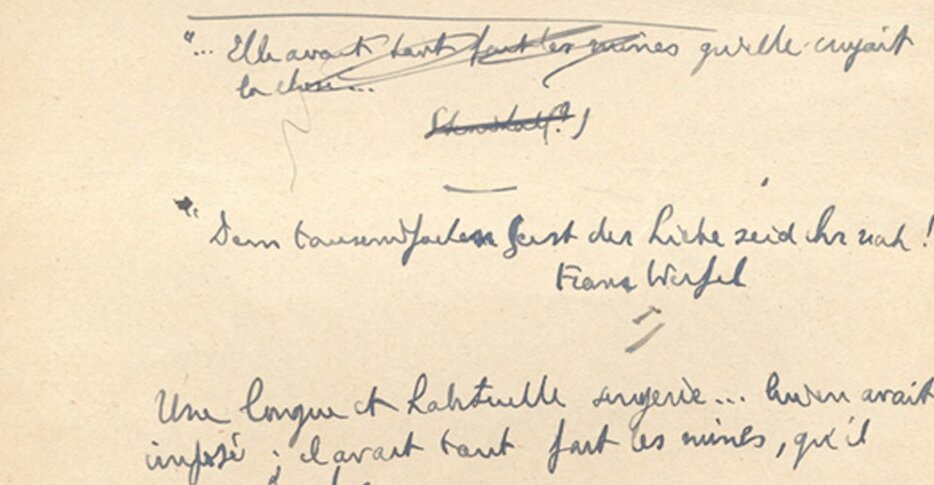 "... Elle avait tant fait les mines qu'elle croyait
la chose...
Stendhal (?)
" Dem tausendfachen Geist der Liebe seid ihr nah !
Franz Werfel
Une longue et habituelle singerie... lui en avait
imposé ; il avait tant fait les mines, qu'il